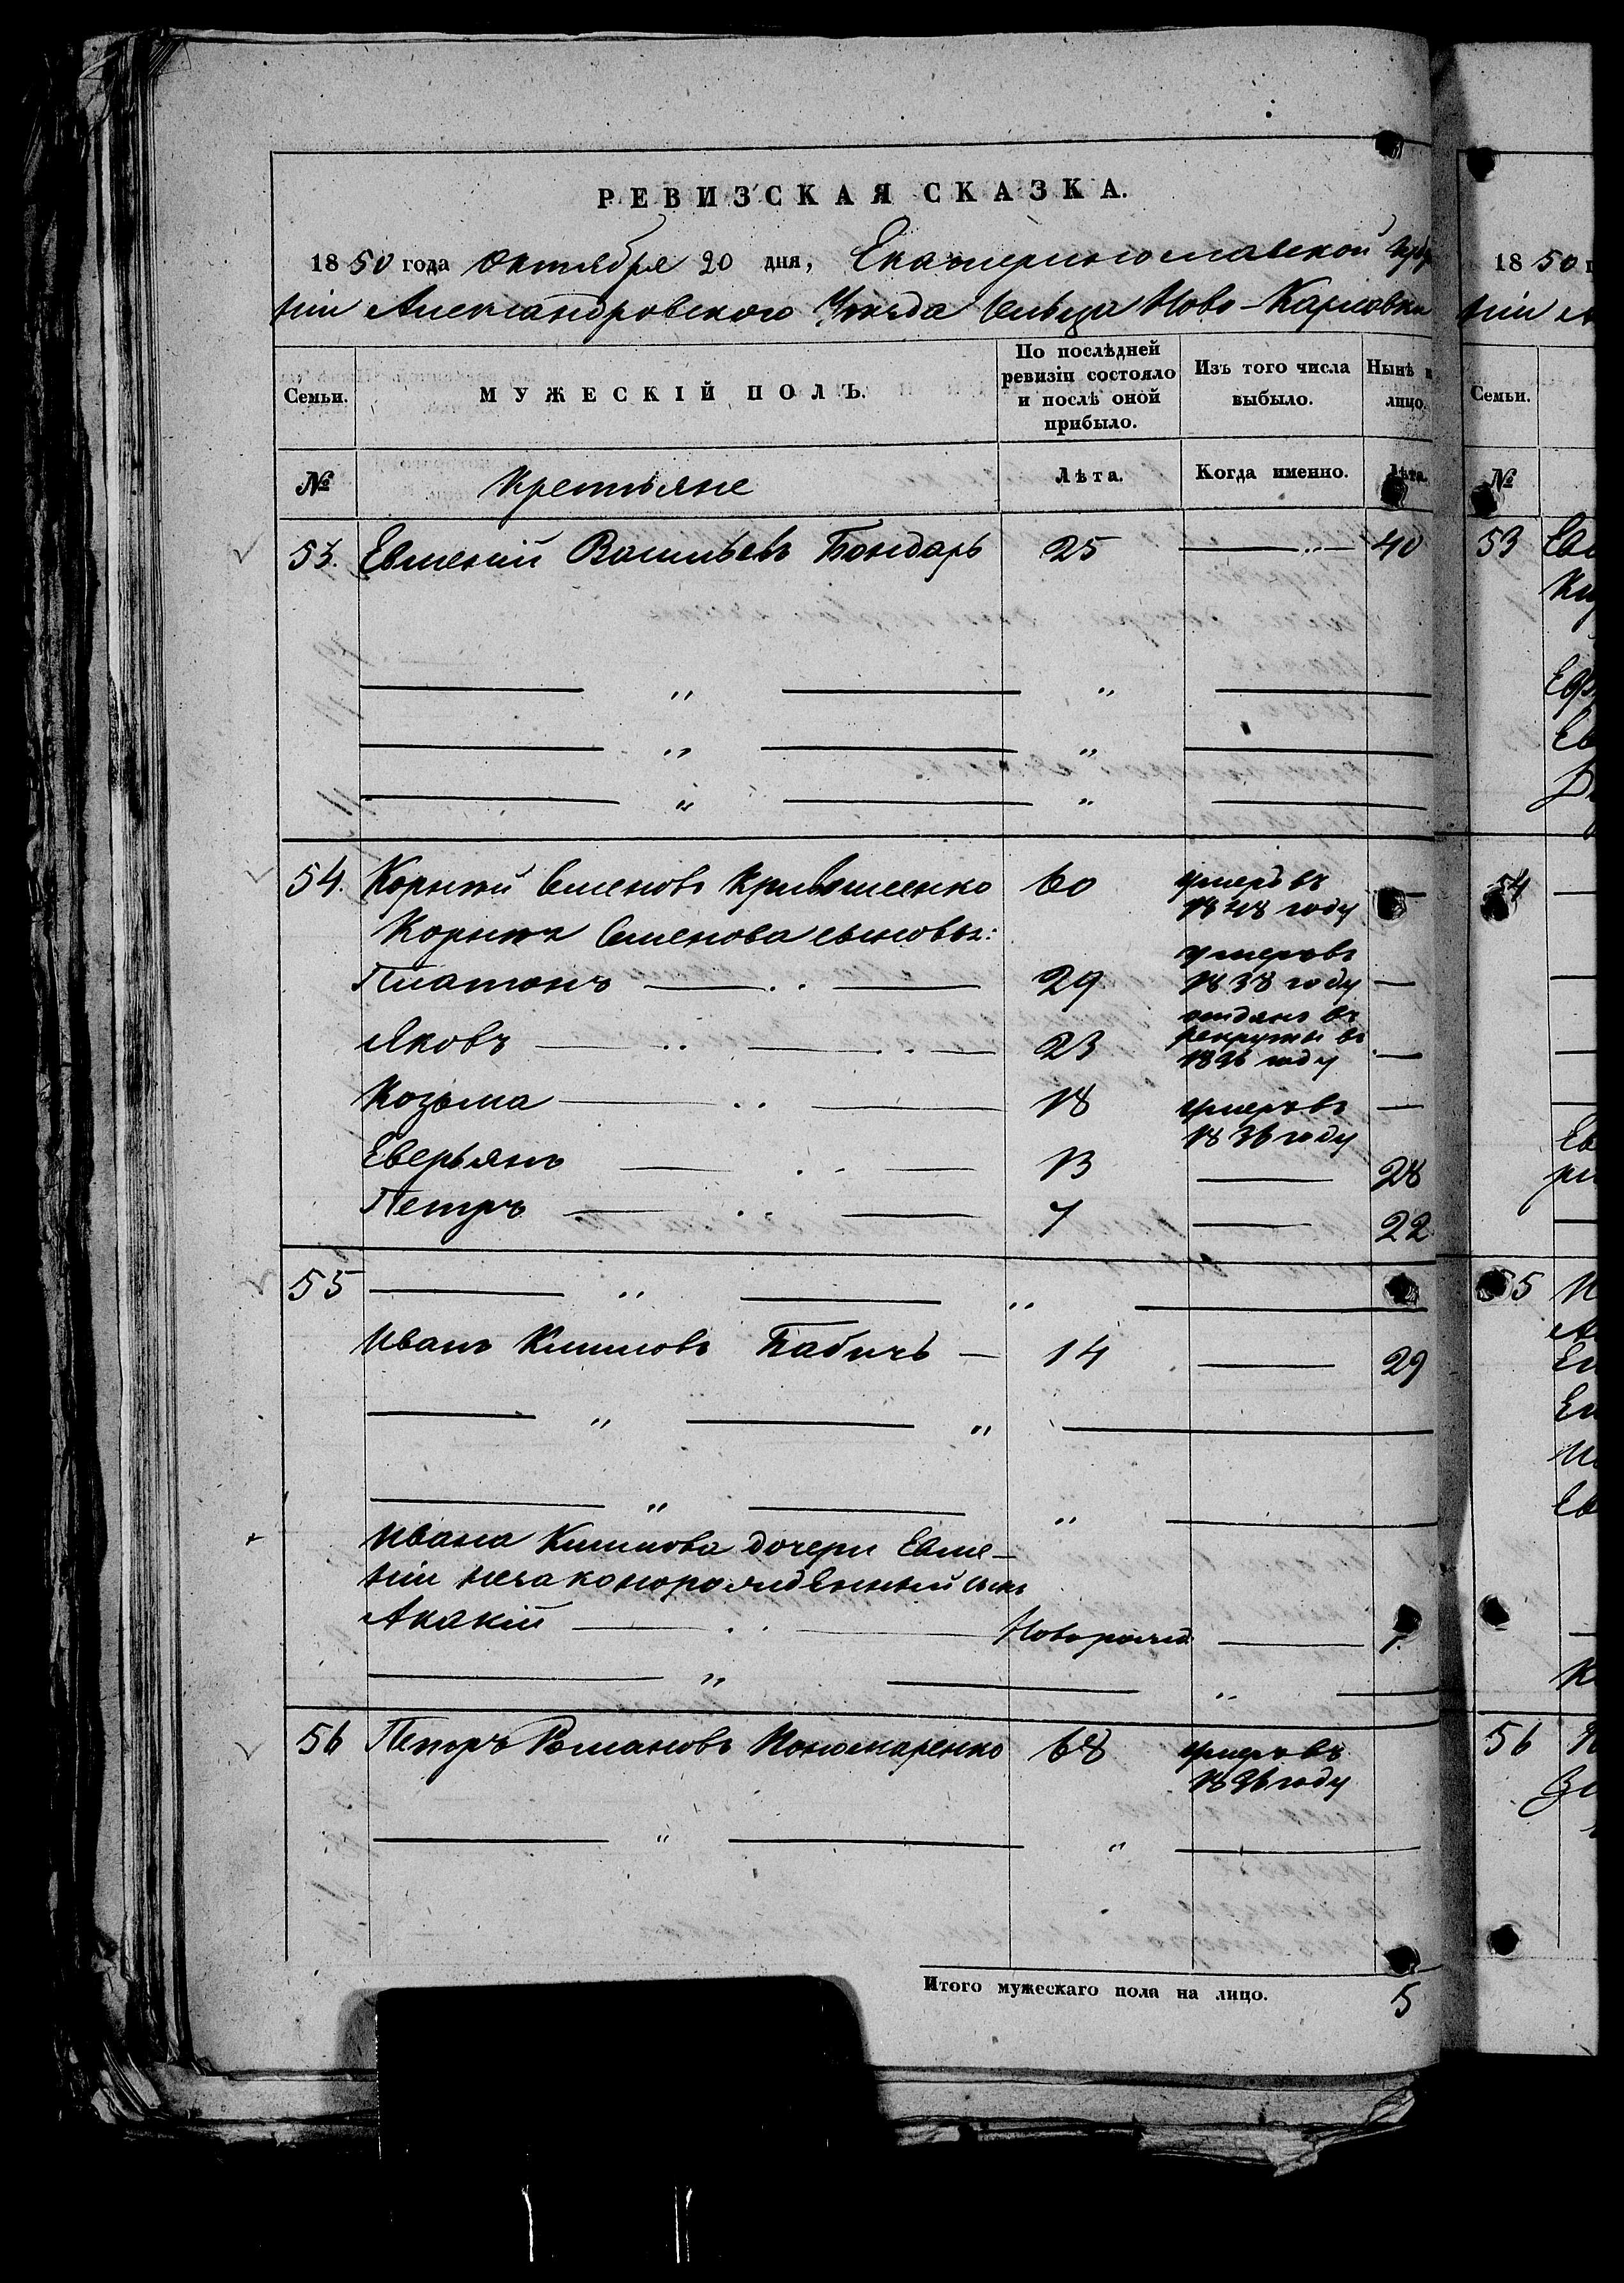 РЕВИЗСКАЯ СКАЗКА.
1850 года Октября 20 дня, Екатеринославской Губер
ніи Александровского Уѣзда Сельца Ново-Карловки
Семьи.
МУЖЕСКІЙ ПОЛЪ.
По послѣдней ревизіи состояло и послѣ оной прибыло.
Изъ того числа выбыло.
Нынѣ
лицо.
№ Крестьяне Лѣта. Когда именно. Лѣта.
53. Евменій Васильевъ Бондарь 25 — 40
— „ — „ —
— „ — „ —
— „ — „ —
54. Корнѣй Семеновъ Кривошеенко 60 умеръ въ 1848 году —
Корнѣя Семенова сыновья:
Платонъ — 29 умеръ въ 1838 году —
Яковъ — 23 отданъ въ рекруты въ 1836 году —
Козьма — 18 умеръ въ 1836 году —
Еверьянъ — 13 — 28
Петръ — 7 — 22
55 — „ — „ —
Иванъ Климовъ Бабичъ — 14 — 29
— „ — „ —
— „ — „ —
Ивана Климова дочери Евме-
ніи незаконорожденный сынъ
Акакій —Новорожд — 1
— „ — „ —
56 Петръ Романовъ Пономаренко 68 умеръ въ 1836 году
— „ — „ —
Итого мужескаго пола на лицо. 5
1850
ніи
Семьи.
№
53
54
55
56